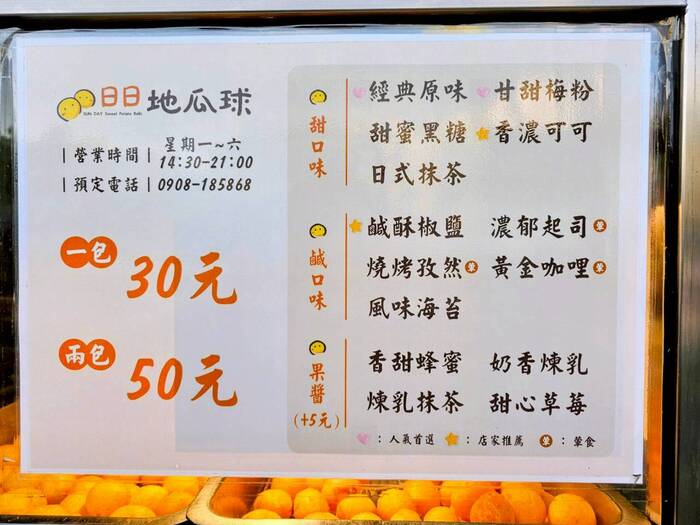 日日地瓜球
SUN DAY Sweet Potato Balls
| 營業時間 | 星期一~六
14:30-21:00
| 預定電話 | 0908-185868
一包 30元
兩包 50元
甜口味
經典原味 甘甜梅粉
甜蜜黑糖 香濃可可
日式抹茶
鹹口味
鹹酥椒鹽 濃郁起司 葷
燒烤孜然 葷 黃金咖哩 葷
風味海苔
果醬
(+5元)
香甜蜂蜜 奶香煉乳
煉乳抹茶 甜心草莓
：人氣首選 ：店家推薦 葷：葷食